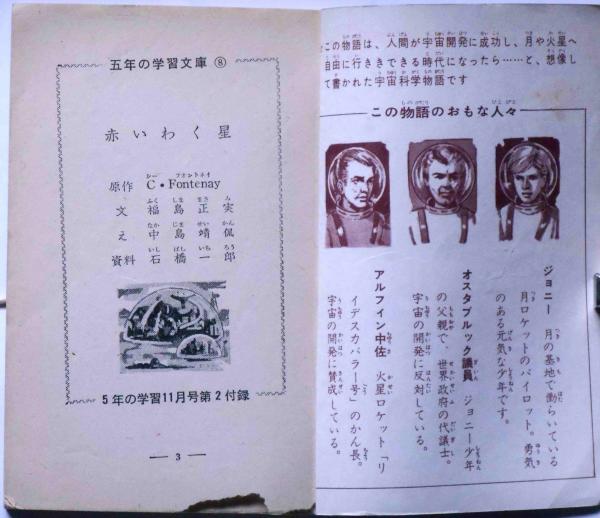 五年の学習文庫 ⑧
赤いわく星
原作 C・Fontenay
文 福島正実
え 中島靖侃
資料 石橋一郎
5年の学習11月号第2付録
— 3
この物語は、人間が宇宙開発に成功し、月や火星へ
自由に行ききできる時代になったら……と、想像し
て書かれた宇宙科学物語です
この物語のおもな人々
ジョニー 月の基地で働らいている
月ロケットのパイロット。勇気
のある元気な少年です。
オスタブルック議員 ジョニー少年
の父親で、世界政府の代議士。
宇宙の開発に反対している。
アルフィン中佐 火星ロケット「リ
イデスカバラー号」のかん長。
宇宙の開発に賛成している。